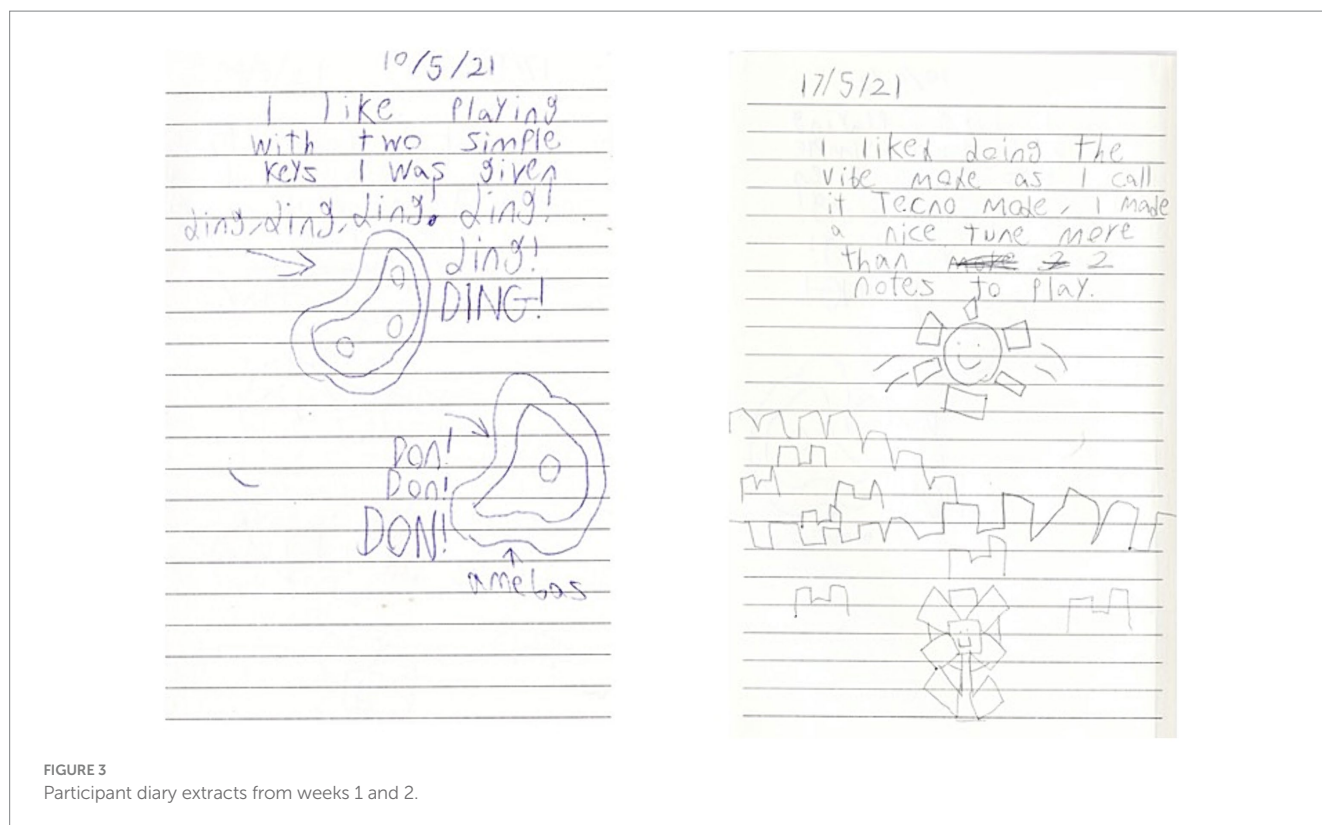 10/5/21
I like Playing
with two simple
keys I was given
ding, ding, ding! ding!
ding!
DING!
Don!
Don!
DON!
amebas
17/5/21
I liked doing the
vibe mode as I call
it Tecno Mode, I made
a nice tune more
than 2
notes to Play.
FIGURE 3
Participant diary extracts from weeks 1 and 2.